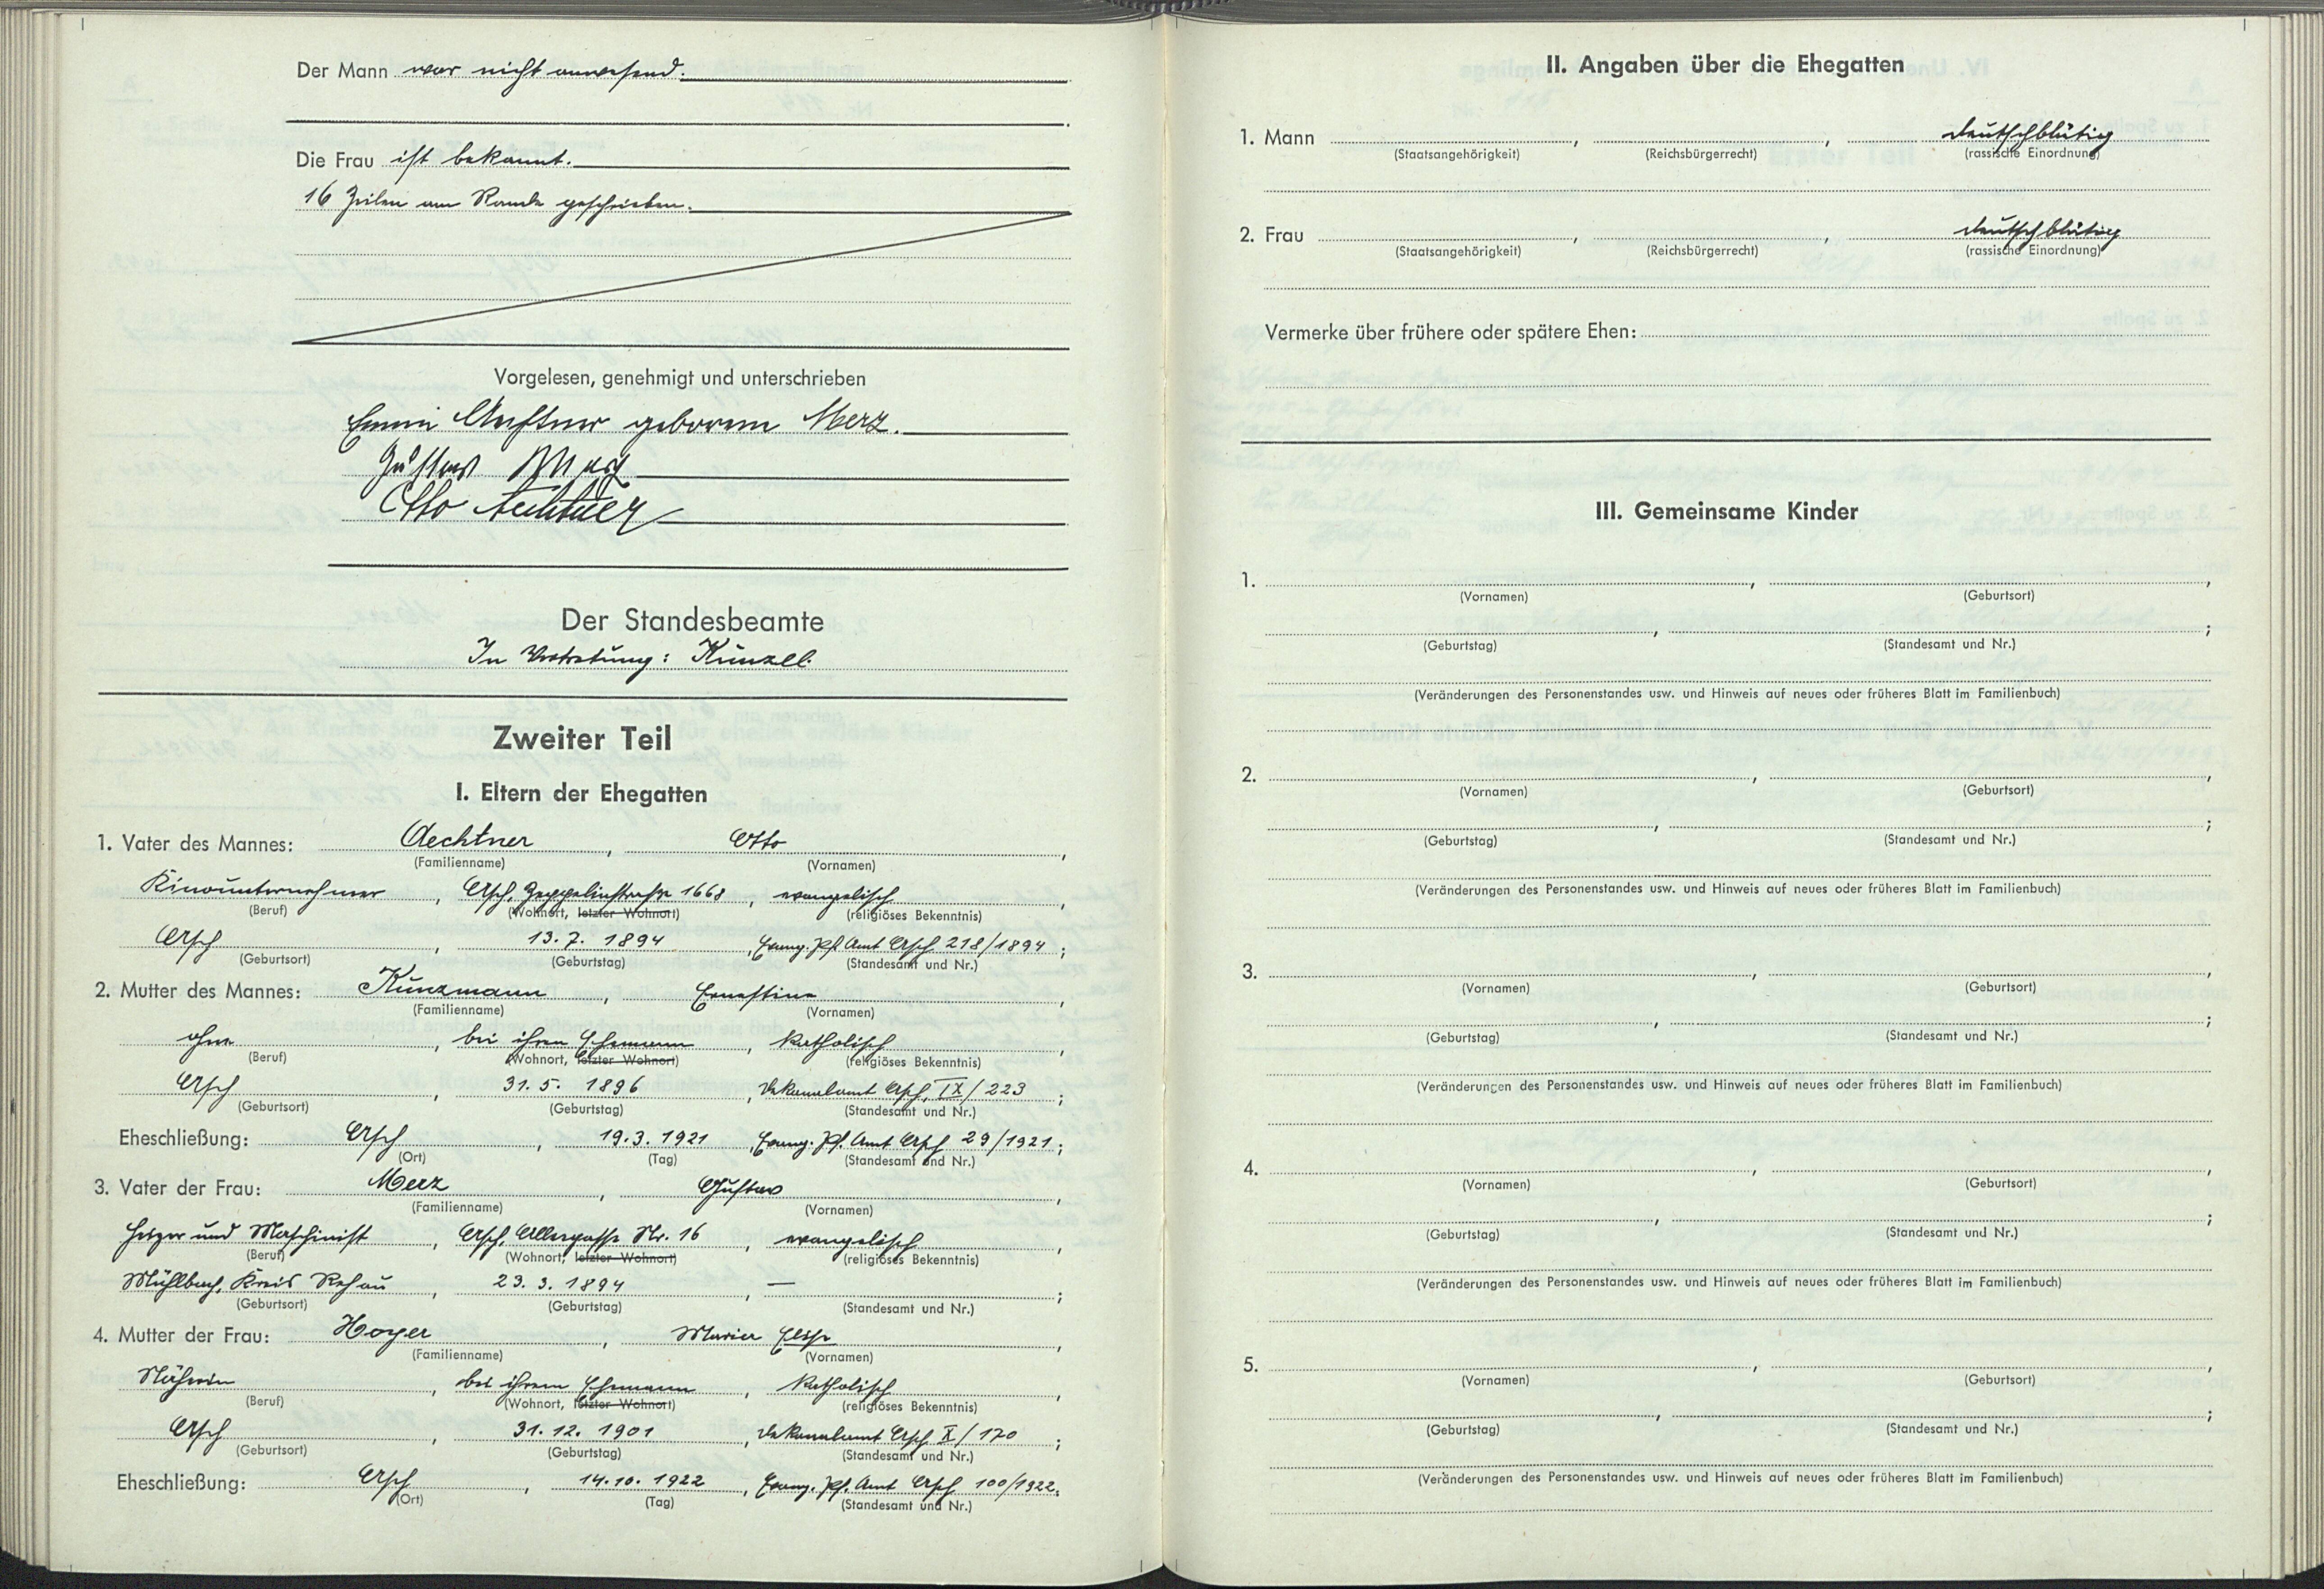 Der Mann war nicht anwesend.
Die Frau ist bekannt.
16 Zeilen am Rande geschrieben.
Vorgelesen, genehmigt und unterschrieben
Emmi Aechtner geborene Merz.
Gustav Merz
Otto Aechtner
Der Standesbeamte
In Vertretung: Künzel.
Zweiter Teil
I. Eltern der Ehegatten
1. Vater des Mannes: Aechtner, Otto,
(Familienname) (Vornamen)
Kinounternehmer, Asch, Zeppelinstraße 1668, evangelisch,
(Beruf) (Wohnort, letzter Wohnort) (religiöses Bekenntnis)
Asch, 13.7.1894, Evang. Pf. Amt Asch 218/1894;
(Geburtsort) (Geburtstag) (Standesamt und Nr.)
2. Mutter des Mannes: Künzmann, Ernestine,
(Familienname) (Vornamen)
ohne, bei ihrem Ehemann, katholisch,
(Beruf) (Wohnort, letzter Wohnort) (religiöses Bekenntnis)
Asch, 31.5.1896, Dekanalamt Asch, IX/223;
(Geburtsort) (Geburtstag) (Standesamt und Nr.)
Eheschließung: Asch, 19.3.1921, Evang. Pf. Amt Asch 29/1921;
(Ort) (Tag) (Standesamt und Nr.)
3. Vater der Frau: Merz, Gustav,
(Familienname) (Vornamen)
Heizer und Maschinist, Asch, Allergasse Nr. 16, evangelisch,
(Beruf) (Wohnort, letzter Wohnort) (religiöses Bekenntnis)
Mühlbach, Kreis Rehau, 23.3.1894, —;
(Geburtsort) (Geburtstag) (Standesamt und Nr.)
4. Mutter der Frau: Hoyer, Maria Elise,
(Familienname) (Vornamen)
Näherin, bei ihrem Ehemann, katholisch,
(Beruf) (Wohnort, letzter Wohnort) (religiöses Bekenntnis)
Asch, 31.12.1901, Dekanalamt Asch X/170;
(Geburtsort) (Geburtstag) (Standesamt und Nr.)
Eheschließung: Asch, 14.10.1922, Evang. Pf. Amt Asch 100/1922.
(Ort) (Tag) (Standesamt und Nr.)
II. Angaben über die Ehegatten
1. Mann , , deutschblütig
(Staatsangehörigkeit) (Reichsbürgerrecht) (rassische Einordnung)
2. Frau , , deutschblütig
(Staatsangehörigkeit) (Reichsbürgerrecht) (rassische Einordnung)
Vermerke über frühere oder spätere Ehen:
III. Gemeinsame Kinder
1. , ,
(Vornamen) (Geburtsort)
, ;
(Geburtstag) (Standesamt und Nr.)
(Veränderungen des Personenstandes usw. und Hinweis auf neues oder früheres Blatt im Familienbuch)
2. , ,
(Vornamen) (Geburtsort)
, ;
(Geburtstag) (Standesamt und Nr.)
(Veränderungen des Personenstandes usw. und Hinweis auf neues oder früheres Blatt im Familienbuch)
3. , ,
(Vornamen) (Geburtsort)
, ;
(Geburtstag) (Standesamt und Nr.)
(Veränderungen des Personenstandes usw. und Hinweis auf neues oder früheres Blatt im Familienbuch)
4. , ,
(Vornamen) (Geburtsort)
, ;
(Geburtstag) (Standesamt und Nr.)
(Veränderungen des Personenstandes usw. und Hinweis auf neues oder früheres Blatt im Familienbuch)
5. , ,
(Vornamen) (Geburtsort)
, ;
(Geburtstag) (Standesamt und Nr.)
(Veränderungen des Personenstandes usw. und Hinweis auf neues oder früheres Blatt im Familienbuch)